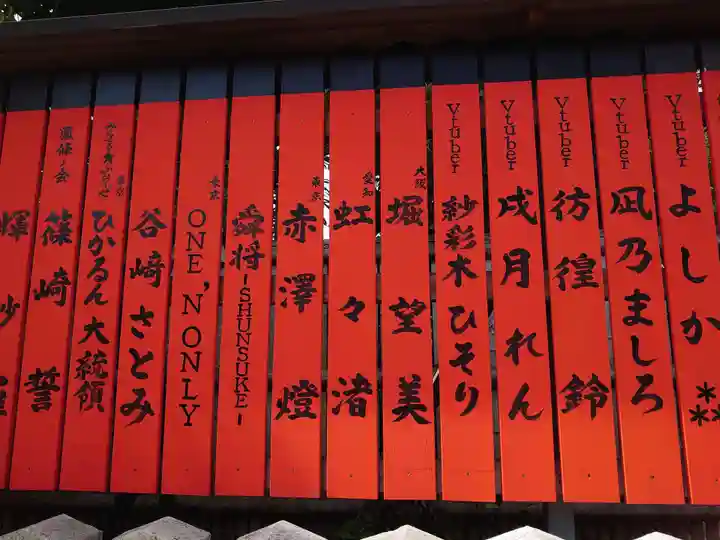 Vtuber よしか⁂
Vtuber 凪乃ましろ
Vtuber 彷徨 鈴
Vtuber 戌月れん
Vtuber 紗彩木ひそり
大阪 堀 望美
愛知 虹々渚
東京 赤澤 燈
舜将-SHUNSUKE-
東京 ONE'N'ONLY
谷崎さとみ
東京 ひかるん大統領
篠崎 誓